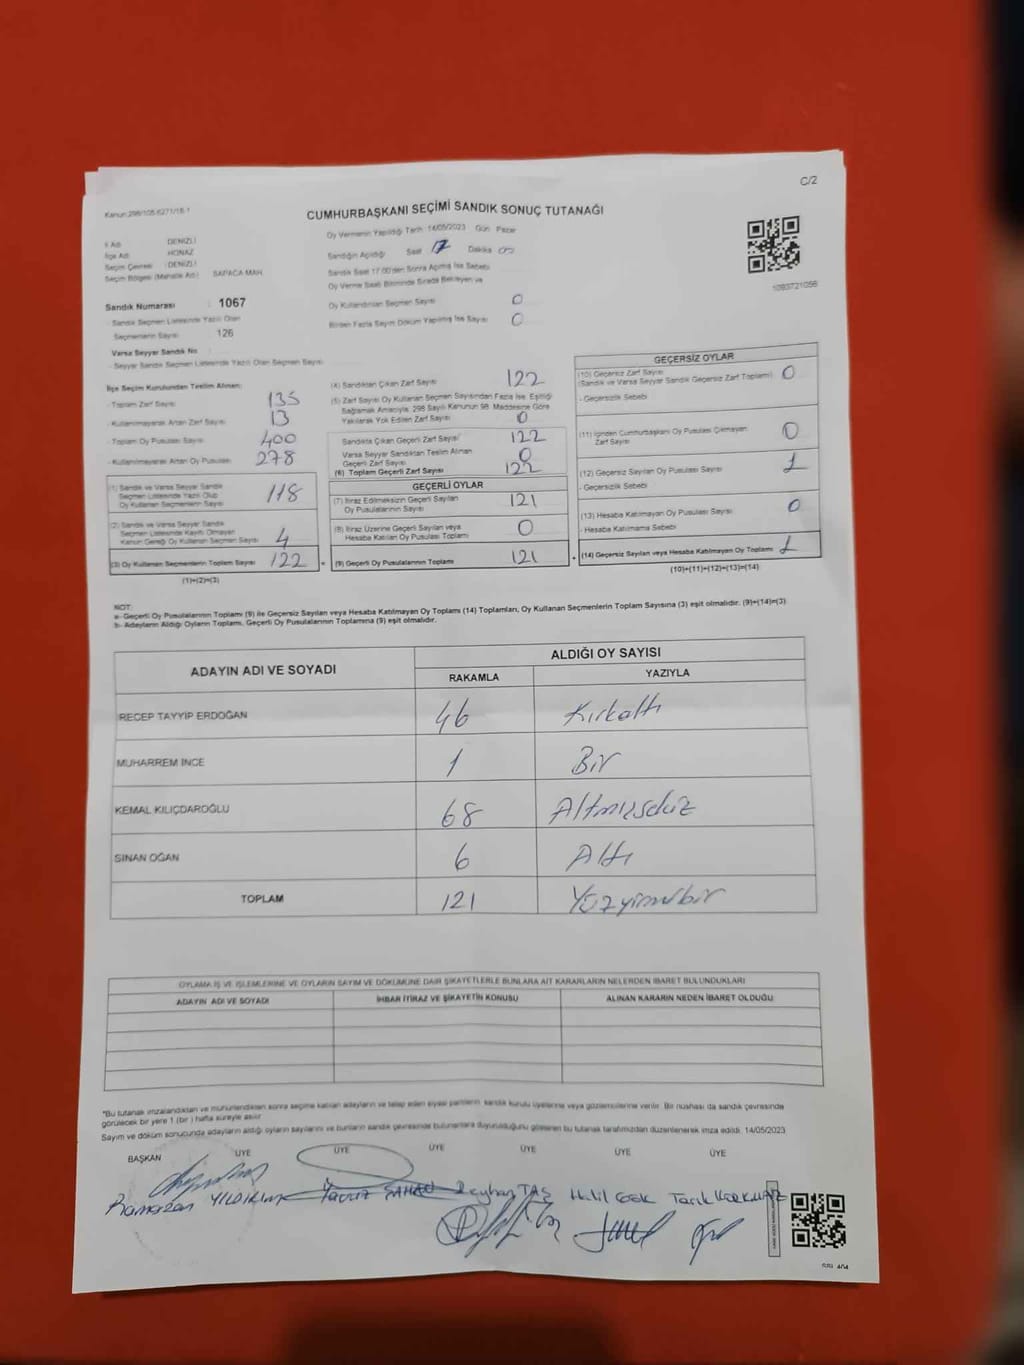 C/2
Kanun:298/105.6271/18.1
CUMHURBAŞKANI SEÇİMİ SANDIK SONUÇ TUTANAĞI
İl Adı DENİZLİ
İlçe Adı HONAZ
Seçim Çevresi DENİZLİ
Seçim Bölgesi (Mahalle Adı) SAPACA MAH.
Sandık Numarası : 1067
- Sandık Seçmen Listesinde Yazılı Olan
Seçmenlerin Sayısı 126
Varsa Seyyar Sandık No
- Seyyar Sandık Seçmen Listesinde Yazılı Olan Seçmen Sayısı
Oy Vermenin Yapıldığı Tarih 14/05/2023 Gün Pazar
Sandığın Açıldığı Saat 17 Dakika 00
Sandık Saat 17:00'den Sonra Açılmış İse Sebebi
Oy Verme Saati Bitiminde Sırada Bekleyen ve
Oy Kullandırılan Seçmen Sayısı 0
Birden Fazla Sayım Döküm Yapılmış İse Sayısı 0
1093721056
İlçe Seçim Kurulundan Teslim Alınan:
- Toplam Zarf Sayısı 135
- Kullanılmayarak Artan Zarf Sayısı 13
- Toplam Oy Pusulası Sayısı 400
- Kullanılmayarak Artan Oy Pusulası 278
(1) Sandık ve Varsa Seyyar Sandık
Seçmen Listesinde Yazılı Olup
Oy Kullanan Seçmenlerin Sayısı 118
(2) Sandık ve Varsa Seyyar Sandık
Seçmen Listesinde Kayıtlı Olmayan
Kanun Gereği Oy Kullanan Seçmen Sayısı 4
(3) Oy Kullanan Seçmenlerin Toplam Sayısı 122
(1)+(2)=(3)
(4) Sandıktan Çıkan Zarf Sayısı 122
(5) Zarf Sayısı Oy Kullanan Seçmen Sayısından Fazla İse, Eşitliği
Sağlamak Amacıyla, 298 Sayılı Kanunun 98. Maddesine Göre
Yakılarak Yok Edilen Zarf Sayısı 0
Sandıkta Çıkan Geçerli Zarf Sayısı 122
Varsa Seyyar Sandıktan Teslim Alınan
Geçerli Zarf Sayısı 0
(6) Toplam Geçerli Zarf Sayısı 122
GEÇERLİ OYLAR
(7) İtiraz Edilmeksizin Geçerli Sayılan
Oy Pusulalarının Sayısı 121
(8) İtiraz Üzerine Geçerli Sayılan veya
Hesaba Katılan Oy Pusulası Toplamı 0
= (9) Geçerli Oy Pusulalarının Toplamı 121
GEÇERSİZ OYLAR
(10) Geçersiz Zarf Sayısı
(Sandık ve Varsa Seyyar Sandık Geçersiz Zarf Toplamı) 0
- Geçersizlik Sebebi
(11) İçinden Cumhurbaşkanı Oy Pusulası Çıkmayan
Zarf Sayısı 0
(12) Geçersiz Sayılan Oy Pusulası Sayısı 1
- Geçersizlik Sebebi
(13) Hesaba Katılmayan Oy Pusulası Sayısı 0
- Hesaba Katılmama Sebebi
+ (14) Geçersiz Sayılan veya Hesaba Katılmayan Oy Toplamı 1
(10)+(11)+(12)+(13)=(14)
NOT:
a- Geçerli Oy Pusulalarının Toplamı (9) ile Geçersiz Sayılan veya Hesaba Katılmayan Oy Toplamı (14) Toplamları, Oy Kullanan Seçmenlerin Toplam Sayısına (3) eşit olmalıdır. (9)+(14)=(3)
b- Adayların Aldığı Oyların Toplamı, Geçerli Oy Pusulalarının Toplamına (9) eşit olmalıdır.
ADAYIN ADI VE SOYADI ALDIĞI OY SAYISI
RAKAMLA YAZIYLA
RECEP TAYYİP ERDOĞAN 46 Kırkaltı
MUHARREM İNCE 1 Bir
KEMAL KILIÇDAROĞLU 68 Altmışsekiz
SİNAN OĞAN 6 Altı
TOPLAM 121 Yüzyirmibir
OYLAMA İŞ VE İŞLEMLERİNE VE OYLARIN SAYIM VE DÖKÜMÜNE DAİR ŞİKAYETLERLE BUNLARA AİT KARARLARIN NELERDEN İBARET BULUNDUKLARI
ADAYIN ADI VE SOYADI İHBAR İTİRAZ VE ŞİKAYETİN KONUSU ALINAN KARARIN NEDEN İBARET OLDUĞU
*Bu tutanak imzalandıktan ve mühürlendikten sonra seçime katılan adayların ve talep eden siyasi partilerin sandık kurulu üyelerine veya gözlemcilerine verilir. Bir nüshası da sandık çevresinde
görülecek bir yere 1 (bir) hafta süreyle asılır.
Sayım ve döküm sonucunda adayların aldığı oyların sayılarını ve bunların sandık çevresinde bulunanlara duyurulduğunu gösteren bu tutanak tarafımızdan düzenlenerek imza edildi. 14/05/2023
BAŞKAN ÜYE ÜYE ÜYE ÜYE ÜYE ÜYE
Ramazan YILDIRIM Yavuz ŞAHAN Zeyhan TAŞ Halil Tarık KORKMAZ